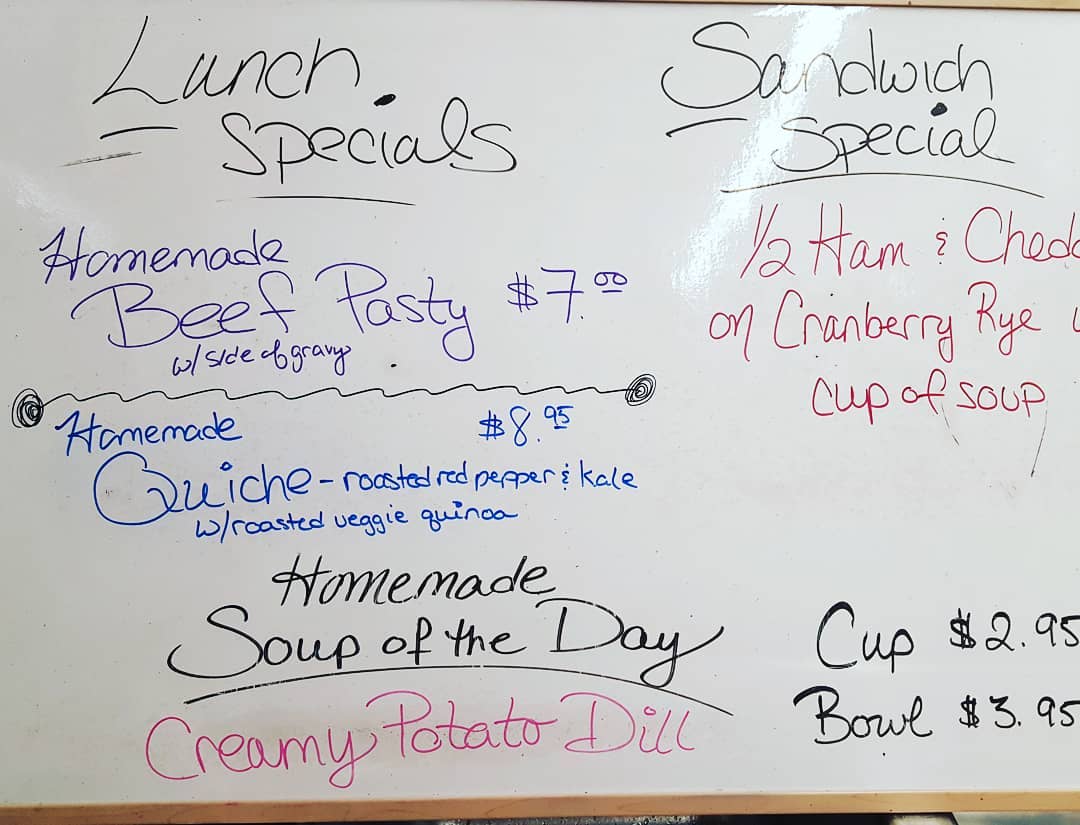 Lunch
Specials
Homemade
Beef Pasty $7.00
w/ side of gravy
Homemade $8.95
Quiche - roasted red pepper & kale
w/roasted veggie quinoa
Sandwich
Special
1/2 Ham & Chedd
on Cranberry Rye
cup of soup
Homemade
Soup of the Day
Creamy Potato Dill
Cup $2.95
Bowl $3.95